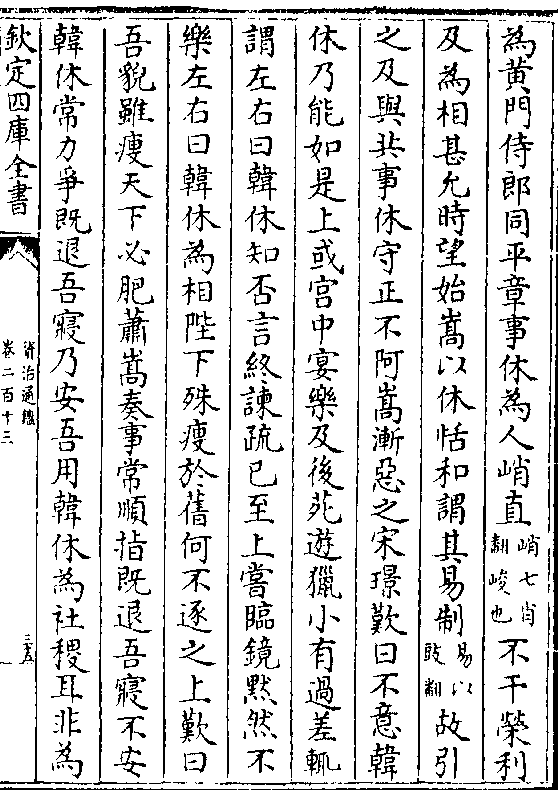 為黃門侍郎同平章事休為人峭直峭七肖翻峻也不干榮利
及為相甚允時望始嵩以休恬和謂其易制易以豉翻故引
之及與共事休守正不阿嵩漸惡之宋璟歎曰不意韓
休乃能如是上或宮中宴樂及後苑遊獵小有過差輒
謂左右曰韓休知否言終諫疏已至上嘗臨鏡默然不
樂左右曰韓休為相陛下殊瘦於舊何不逐之上歎曰
吾貌雖瘦天下必肥蕭嵩奏事常順指既退吾寢不安
韓休常力爭既退吾寢乃安吾用韓休為社稷耳非為
欽定四庫全書
資治通鑑
卷二百十三
三五